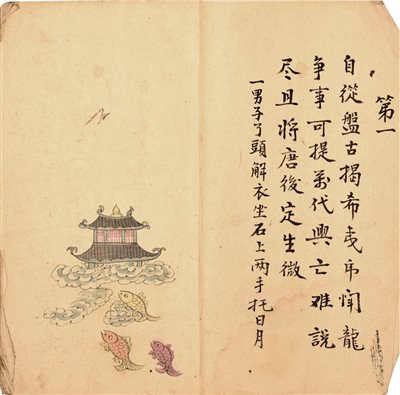 第一
自從盤古揭希夷币闘龍
争事可提萬代興亡难説
尽且將唐後定生微
一男子丫頭解衣坐石上两手托日月